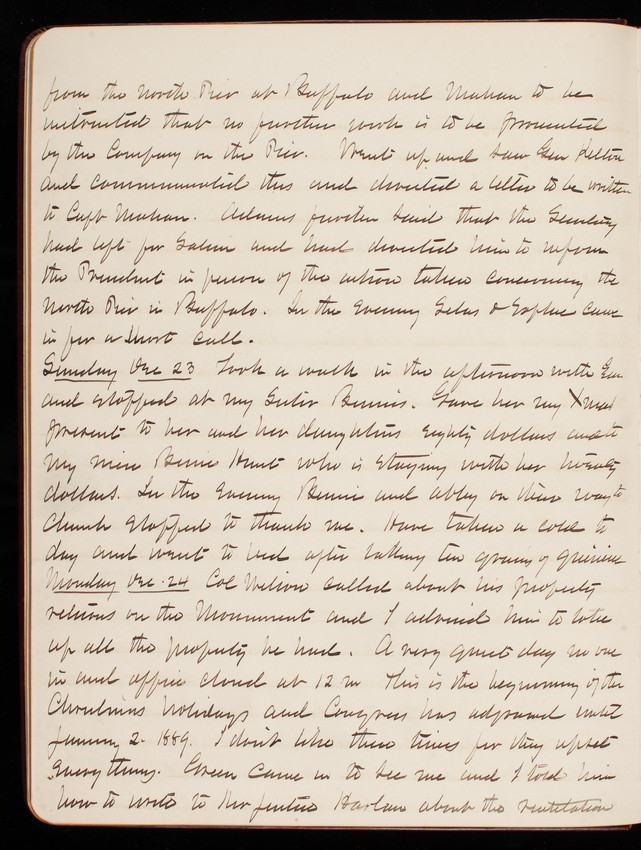 from the North Pier at Buffalo and Mahan to be
instructed that no further work is to be prosecuted
by the Company on the Pier. Went up and saw Gen Kelton
and communicated this and directed a letter to be written
to Capt Mahan. Adams further said that the Secretary
had left for Salem and had directed him to inform
the President in person of the action taken concerning the
North Pier in Buffalo. In the evening & Sophie came
in for a short call.
Sunday Dec 23 Took a walk in the afternoon with
and stopped at my Sister Bennie's. Gave her my Xmas
present to her and her daughters eighty dollars and to
my niece Bessie Hunt who is staying with her twenty
dollars. In the evening Bennie and Abby on their way to
church stopped to thank me. Have taken a cold to
day and went to bed after taking ten grains of quinine
Monday Dec. 24 Col Wilson called about his property
returns on the Monument and I advised him to take
up all the property he had. A very quiet day no one
in and office closed at 12 m This is the beginning of the
Christmas holidays and Congress has adjourned until
January 2. 1889. I don't like these times for they upset
everything. Green came in to see me and I told him
how to write to Mr Justice Harlan about the ventilation